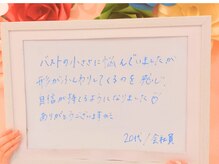 バストの小ささに悩んでいましたが
形がふんわりしてくるのを感じ、
自信が持てるようになりました♡
ありがとうございます
20代/会社員